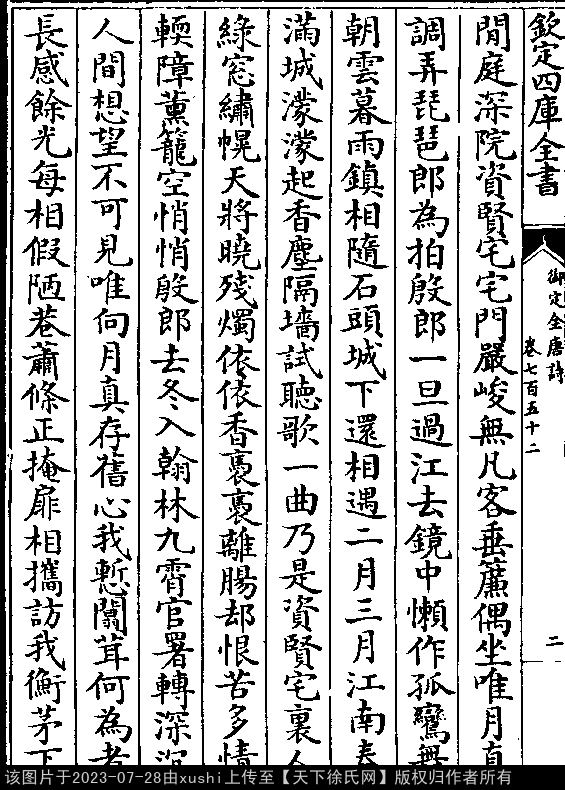 欽定四庫全書
御定全唐詩
卷七百五十二
二
閒庭深院資賢宅宅門嚴峻無凡客垂簾偶坐唯月真
調弄琵琶郎為拍殷郎一旦過江去鏡中懶作孤鸞舞
朝雲暮雨鎮相隨石頭城下還相遇二月三月江南春
滿城濛濛起香塵隔墻試聽歌一曲乃是資賢宅裏人
綠窓繡幌天將曉殘燭依依香裊裊離腸却恨苦多情
輭障薰籠空悄悄殷郎去冬入翰林九霄官署轉深沉
人間想望不可見唯向月真存舊心我慙闒茸何為者
長感餘光每相假陋巷蕭條正掩扉相攜訪我衡茅下
该图片于2023-07-28由xushi上传至【天下徐氏网】版权归作者所有